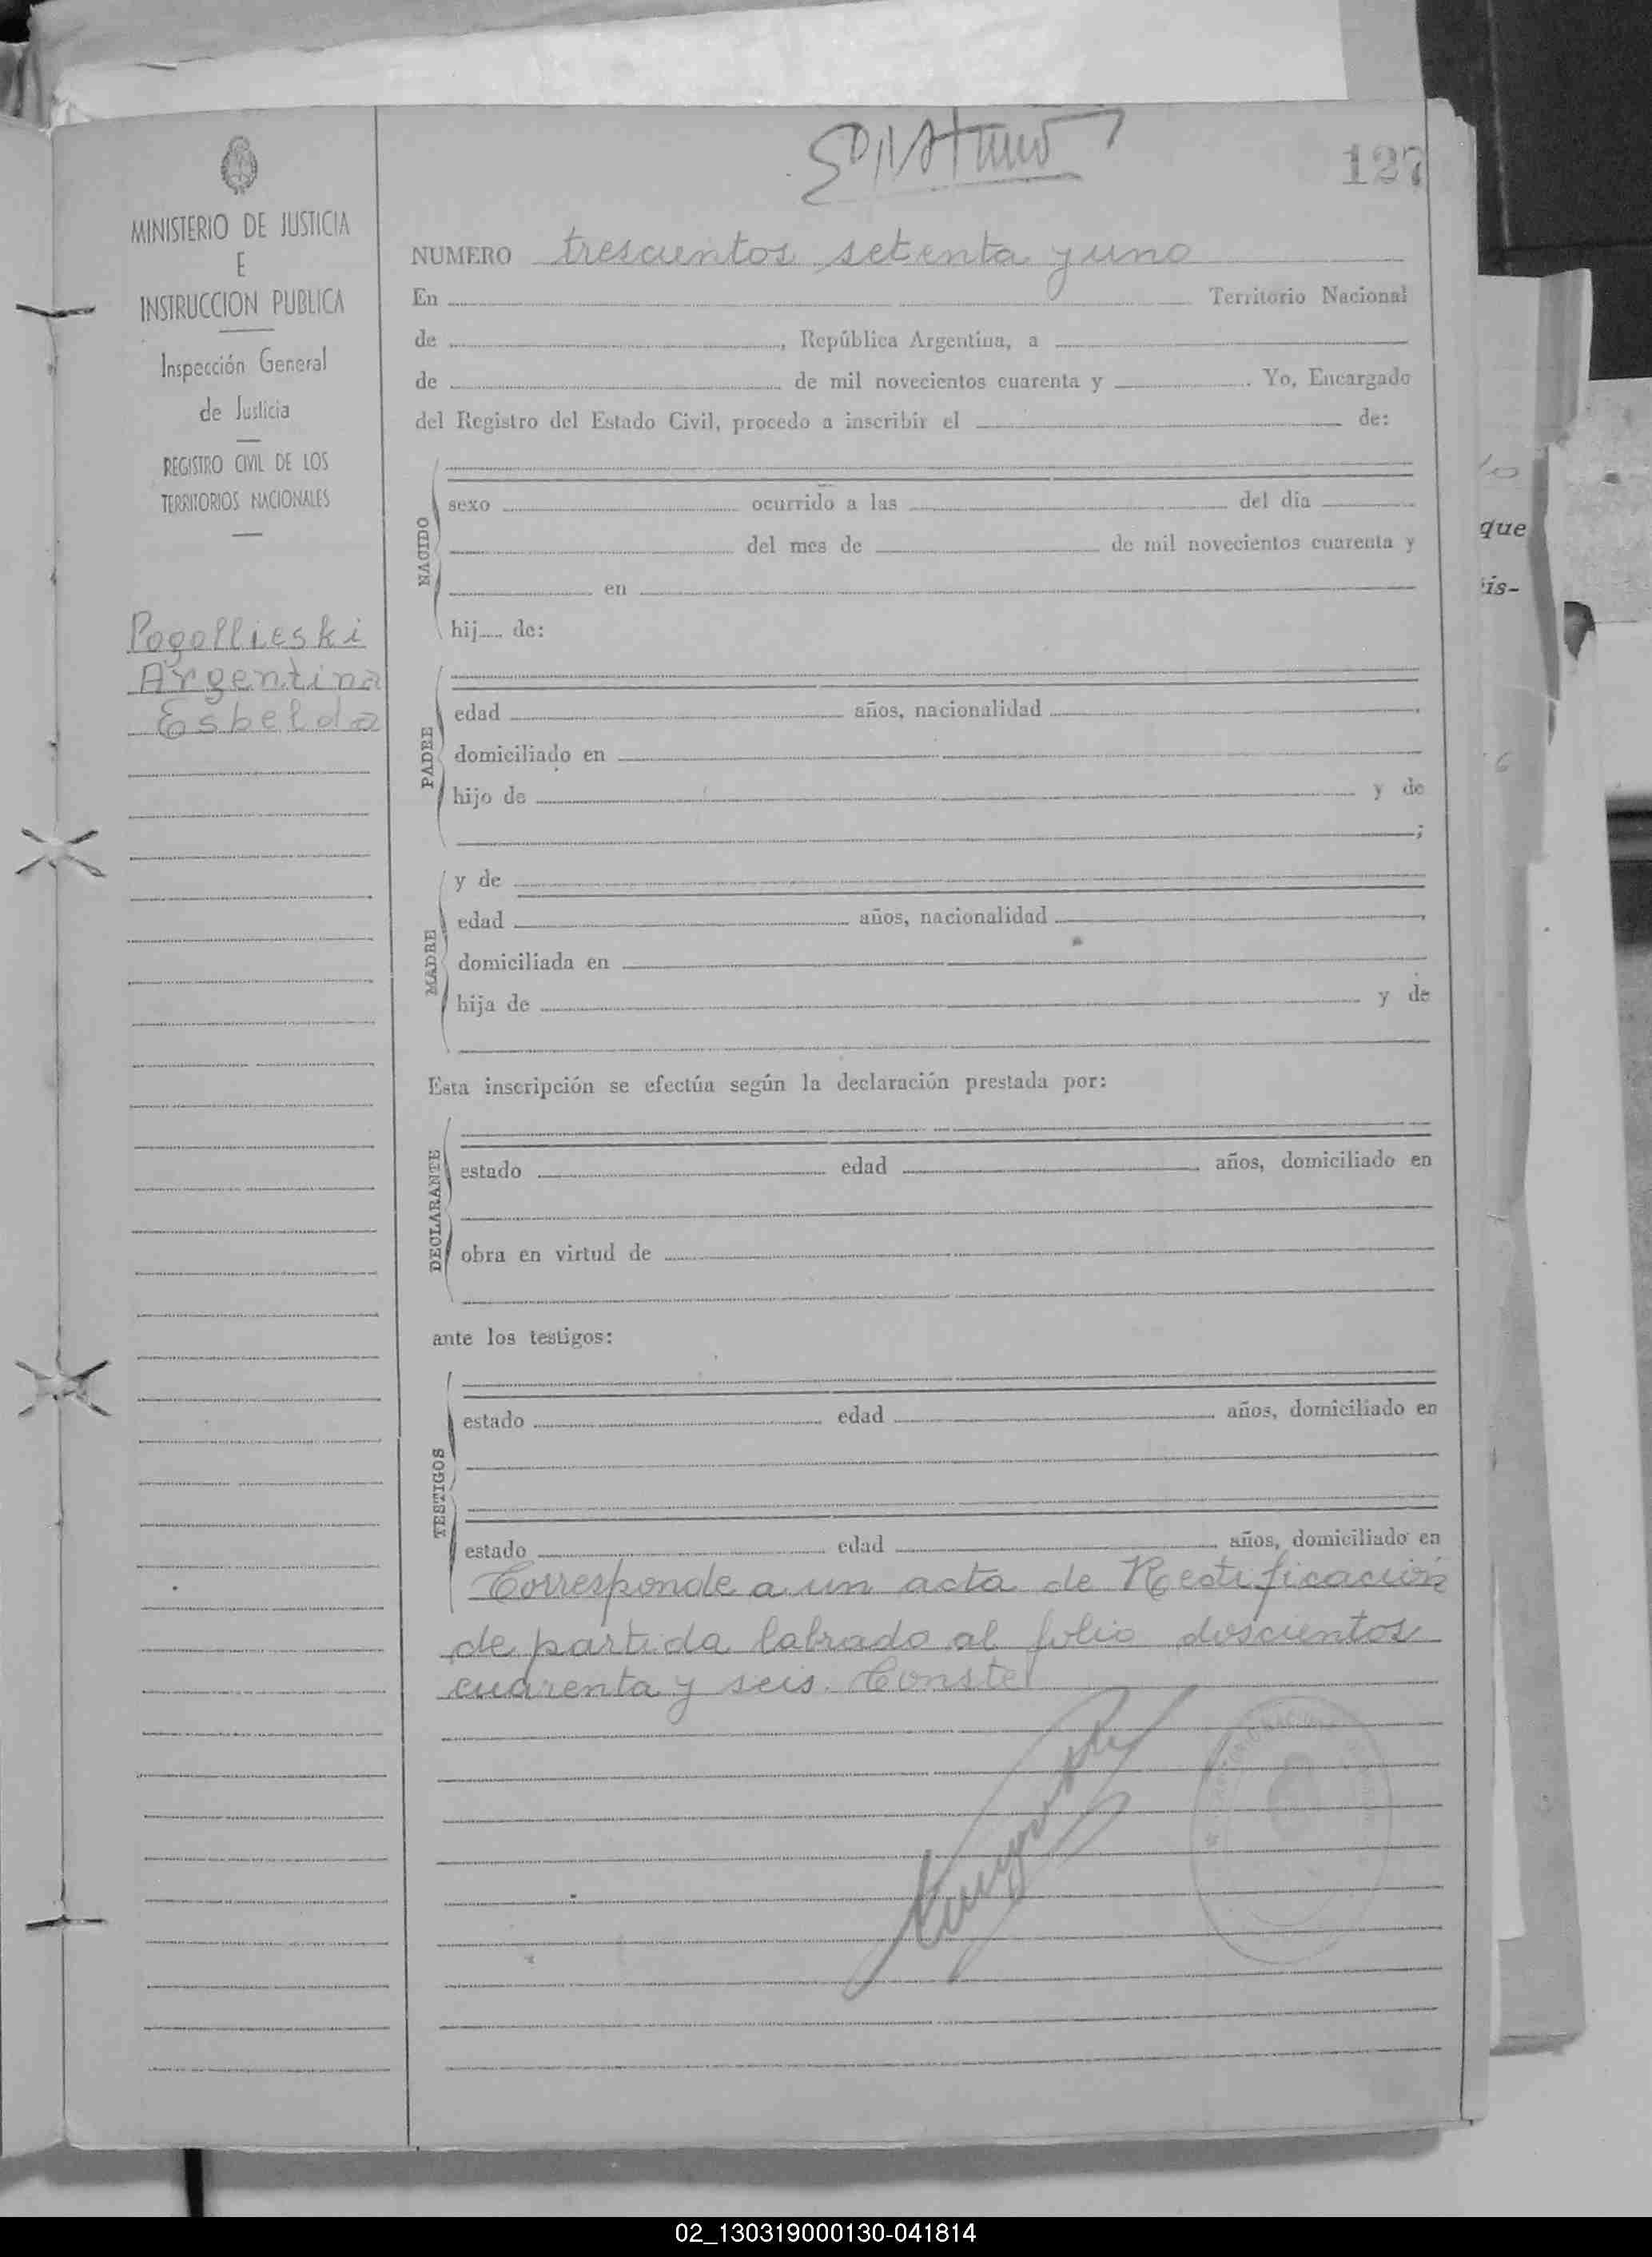 127
MINISTERIO DE JUSTICIA
E
INSTRUCCION PUBLICA
Inspección General
de Justicia
REGISTRO CIVIL DE LOS
TERRITORIOS NACIONALES
Pogollieski
Argentina
Esbelda
NUMERO trescientos setenta y uno
En Territorio Nacional
de , República Argentina, a
de de mil novecientos cuarenta y . Yo, Encargado
del Registro del Estado Civil, procedo a inscribir el de:
NACIDO
sexo ocurrido a las del día
del mes de de mil novecientos cuarenta y
en
hij de:
PADRE
edad años, nacionalidad
domiciliado en
hijo de y de
;
MADRE
y de
edad años, nacionalidad
domiciliada en
hija de y de
Esta inscripción se efectúa según la declaración prestada por:
DECLARANTE
estado edad años, domiciliado en
obra en virtud de
ante los testigos:
TESTIGOS
estado edad años, domiciliado en
estado edad años, domiciliado en
Corresponde a un acta de Rectificación
de partida labrado al folio doscientos
cuarenta y seis. Conste
que
is-
02_130319000130-041814